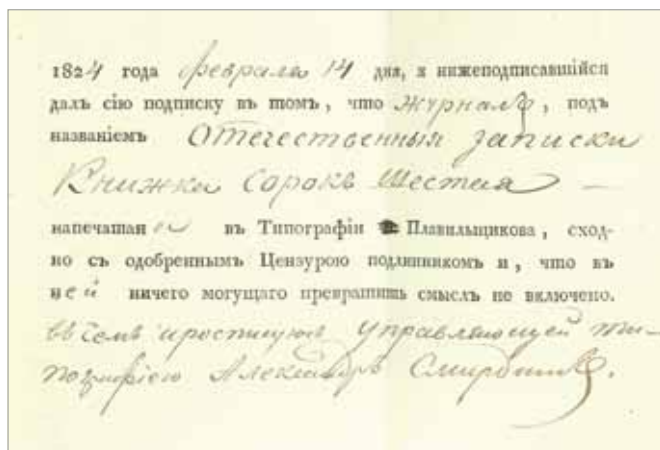 1824 года февраля 14 дня, я нижеподписавшійся
далъ сію подписку въ томъ, что журналъ, подъ
названіемъ Отечественныя записки
Книжка Сорокъ Шестая —
напечатана въ Типографіи Плавильщикова, сход-
но съ одобреннымъ Цензурою подлинникомъ и, что въ
ней ничего могущаго превратить смыслъ не включено.
въ чемъ и росписуюсь управляющей ти-
пографіею Александръ